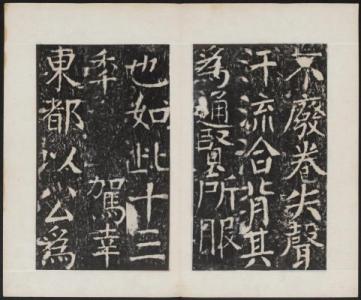 不廢卷失聲
汗流洽背其
為通賢所服
也如此十三
年　駕幸
東都以公為